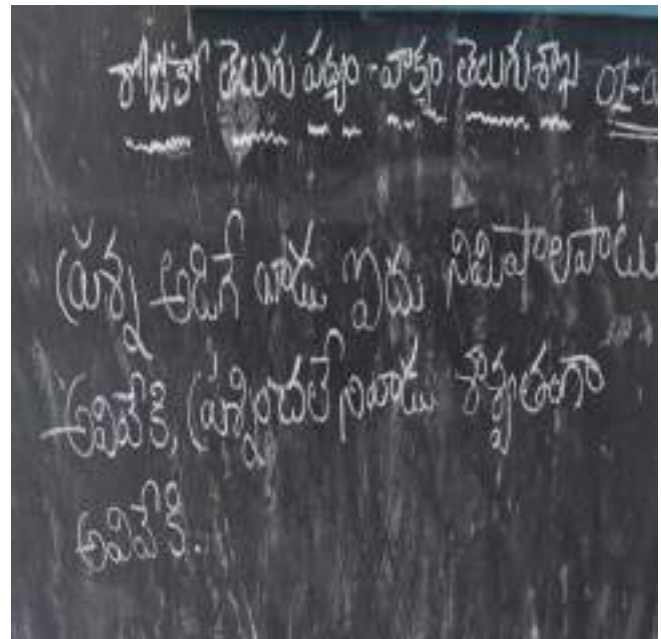 తెలుగు పద్యం - వాక్యం తెలుగు శాఖ
ప్రశ్న అడిగే వాడు ఐదు నిమిషాలపాటు
అవివేకి, ప్రశ్నించలేనివాడు శాశ్వతంగా
అవివేకి.